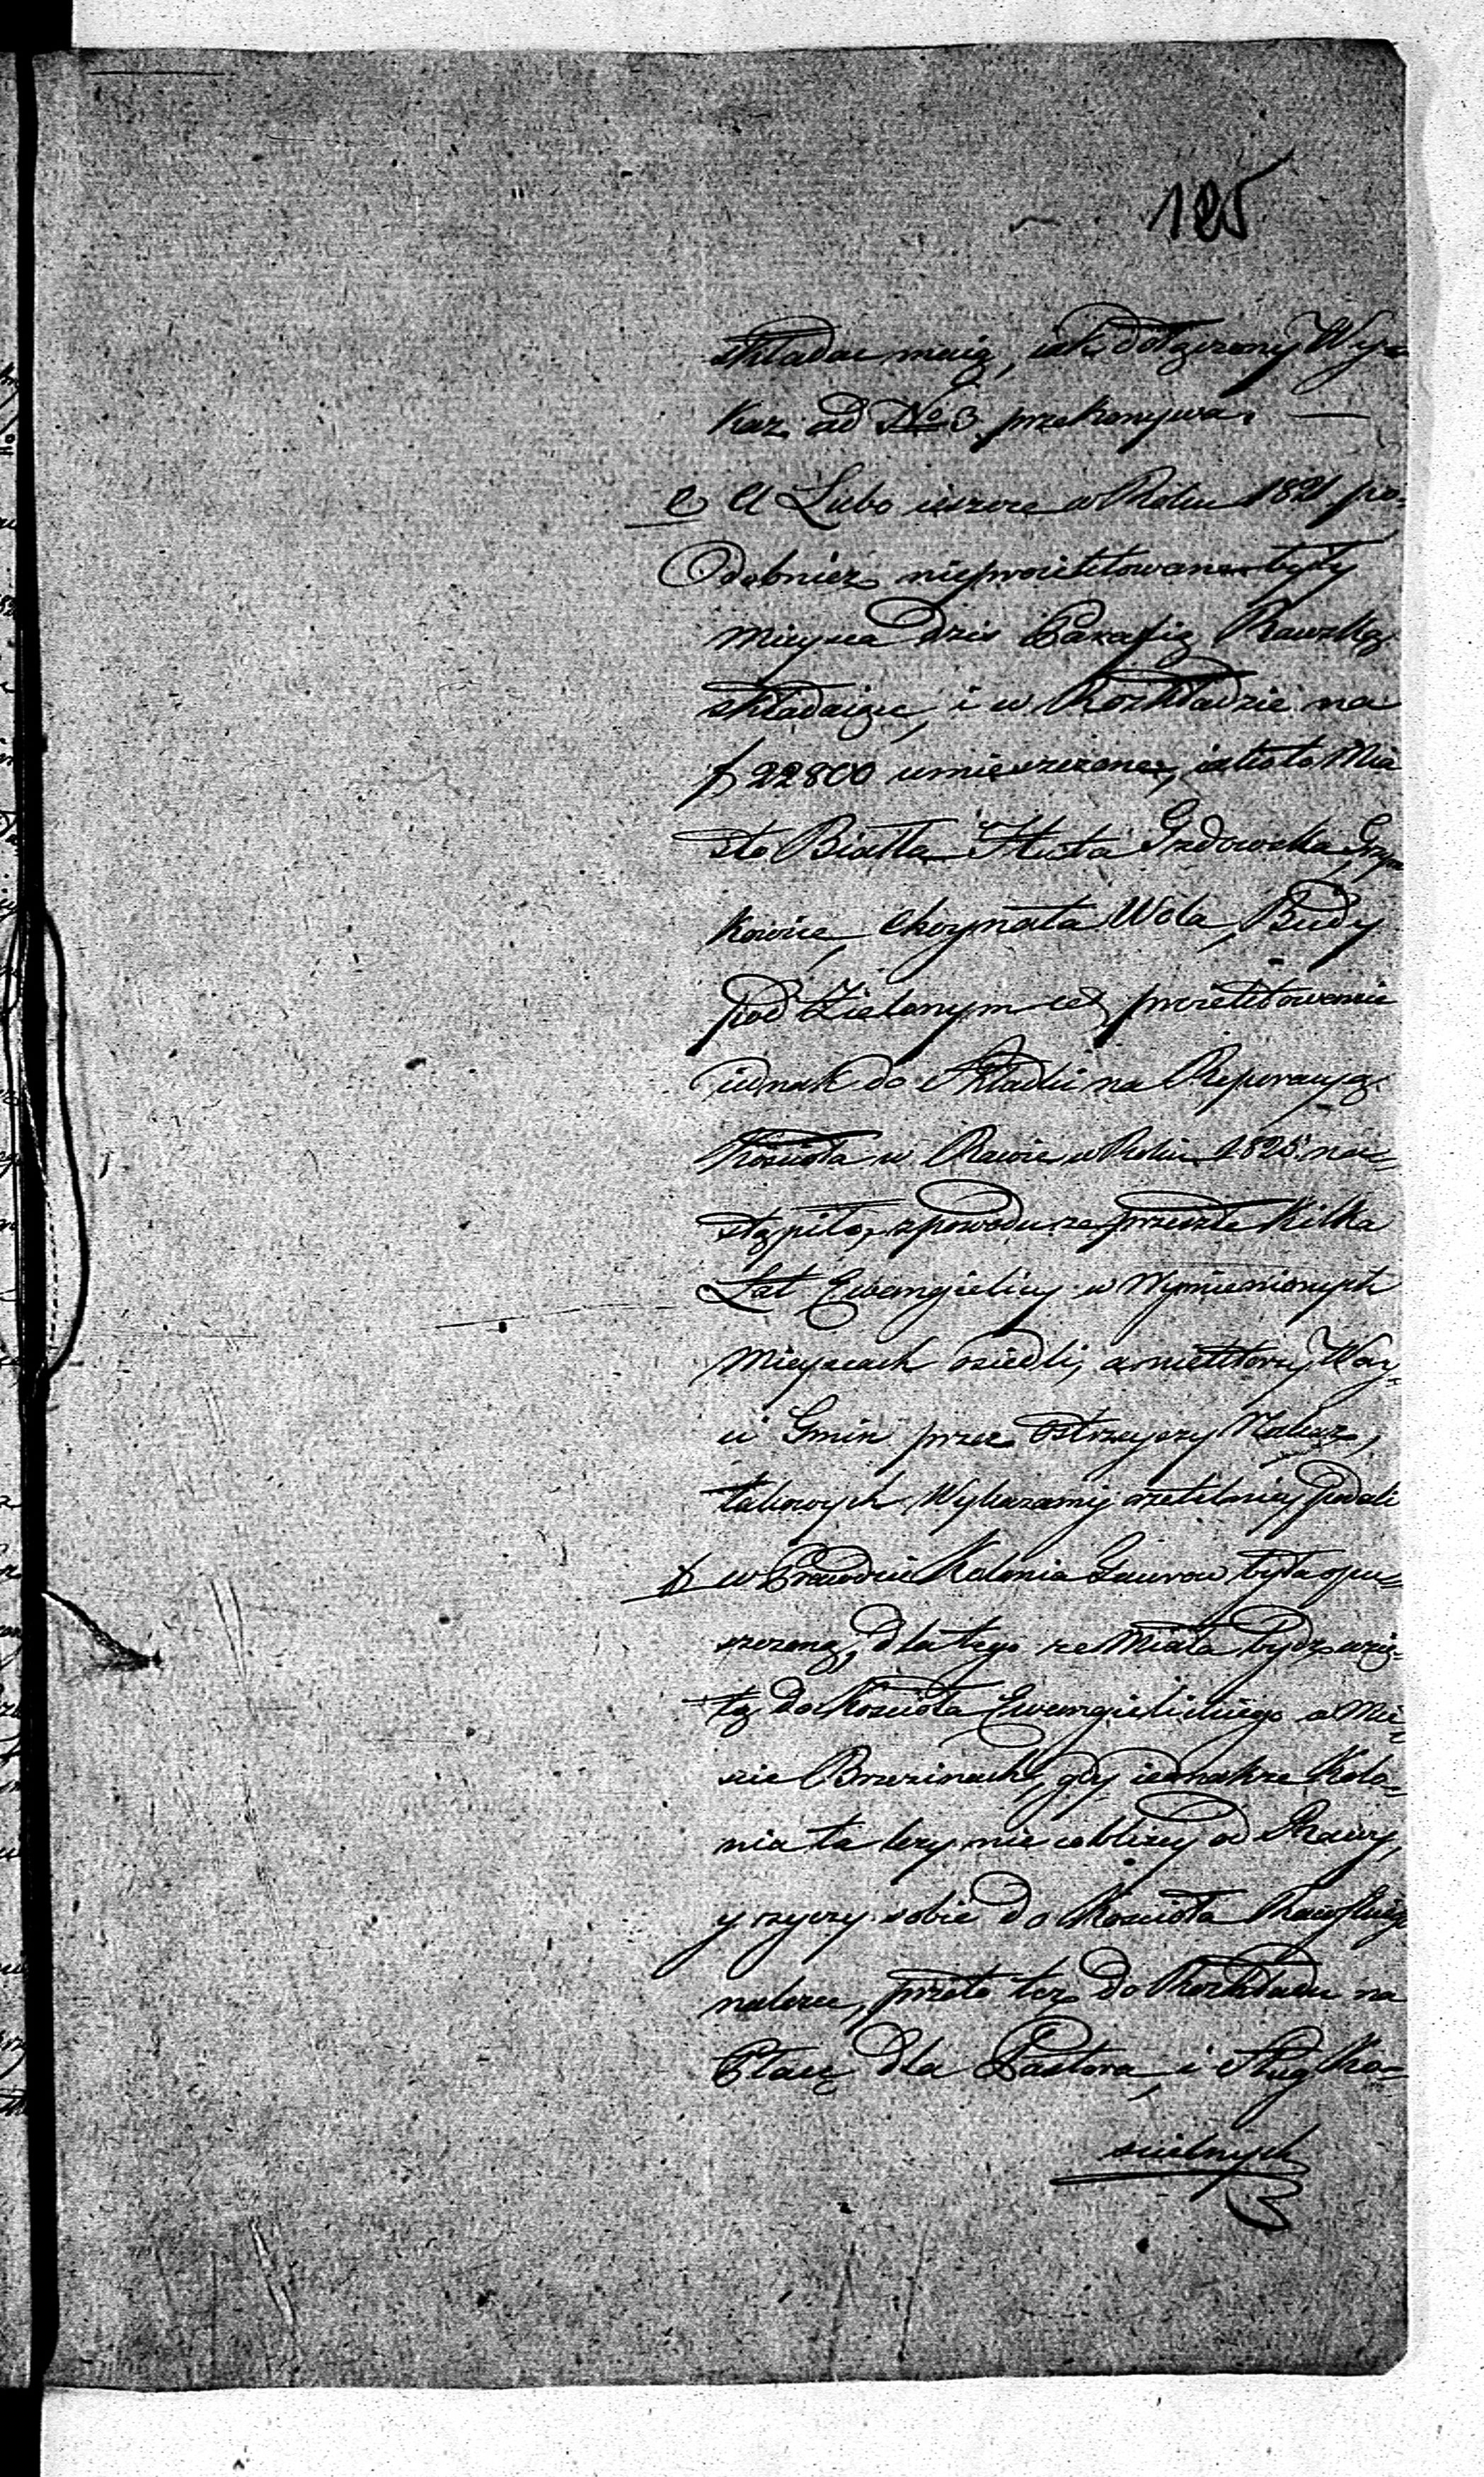 125
składać maią, iak dołączony Wy=
kaz ad No 3 przekonywa. —
e, A Lubo ieszcze w Roku 1821 po=
dobnież nieproiektowane były
mieysca dziś Parafią Rawską
składaiące, i w Rozkładzie na
f 22800 umieszczone, iako to Mia
sto Biała Huta
kowice, Choynata Wola, Budy
pod Zielonym et, proiektowanie
iednak do Składki na Reperacyą
Kościoła w Rawie w Roku 1825 na=
stąpiło, z powodu że przeszło kilka
Lat Ewangielicy w Wymienionych
Mieyscach osiedli, a niektórzy Woy=
ci Gmin przez ostrzeyszy Nakaz,
takowych Wykazami rzetelniey podali
f, w Prawdzie Kolonia Gaurow była opu=
szczoną, dla tego że Miała bydź wzię=
tą do Kościoła Ewangielickiego w Mie=
ście Brzezinach, gdy iednakże Kolo=
nia ta leży nieco bliżey od Rawy,
y życzy sobie do Kościoła Rawskiego
należeć, przeto też do Rozkładu na
Płacę dla Pastora, i Sług Ko=
ścielnych